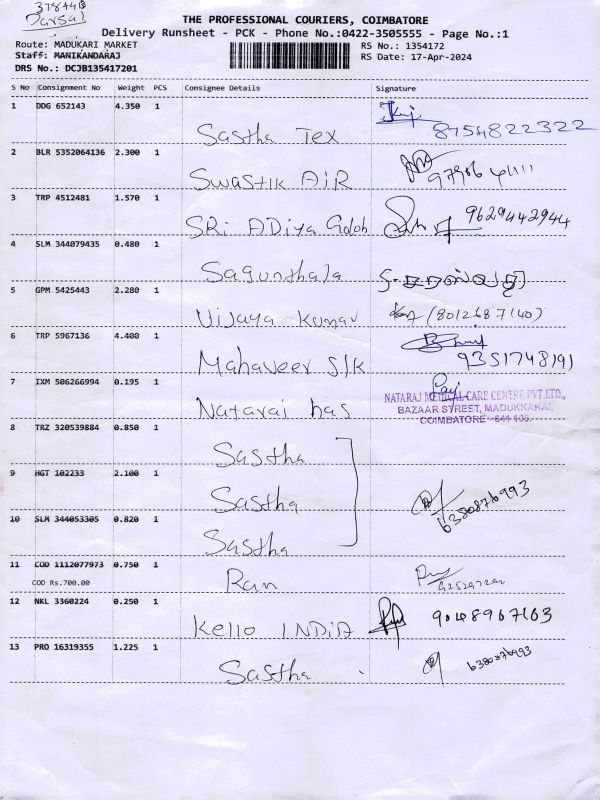 THE PROFESSIONAL COURIERS, COIMBATORE
Delivery Runsheet - PCK - Phone No.:0422-3505555 - Page No.:1
Route: MADUKARI MARKET
RS No.: 1354172
Staff: MANIKANDARAJ
RS Date: 17-Apr-2024
DRS No.: DCJB135417201
S No Consignment No Weight PCS Consignee Details Signature
1 DDG 652143 4.350 1
Sastha Tex 8754822322
2 BLR 5352064136 2.300 1
Swastik AiR
3 TRP 4512481 1.570 1
SRi ADiya 9629442944
4 SLM 344079435 0.480 1
Sagunthala
5 GPM 5425443 2.280 1
Vijaya Kumar (8012687140)
6 TRP 5967136 4.400 1
Mahaveer Slk 9351748191
7 IXM 506266994 0.195 1
Nataraj has
NATARAJ MEDICAL CARE CENTRE PVT.LTD.,
BAZAAR STREET, MADUKKARAI,
COIMBATORE - 641 105.
8 TRZ 320539884 0.850 1
Sastha
9 HGT 102233 2.100 1
Sastha 6380876993
10 SLM 344053305 0.820 1
Sastha
11 COD 1112077973 0.750 1
COD Rs.700.00
Ran
12 NKL 3360224 0.250 1
Kello INDIA 9048967163
13 PRO 16319355 1.225 1
Sastha 6380876993